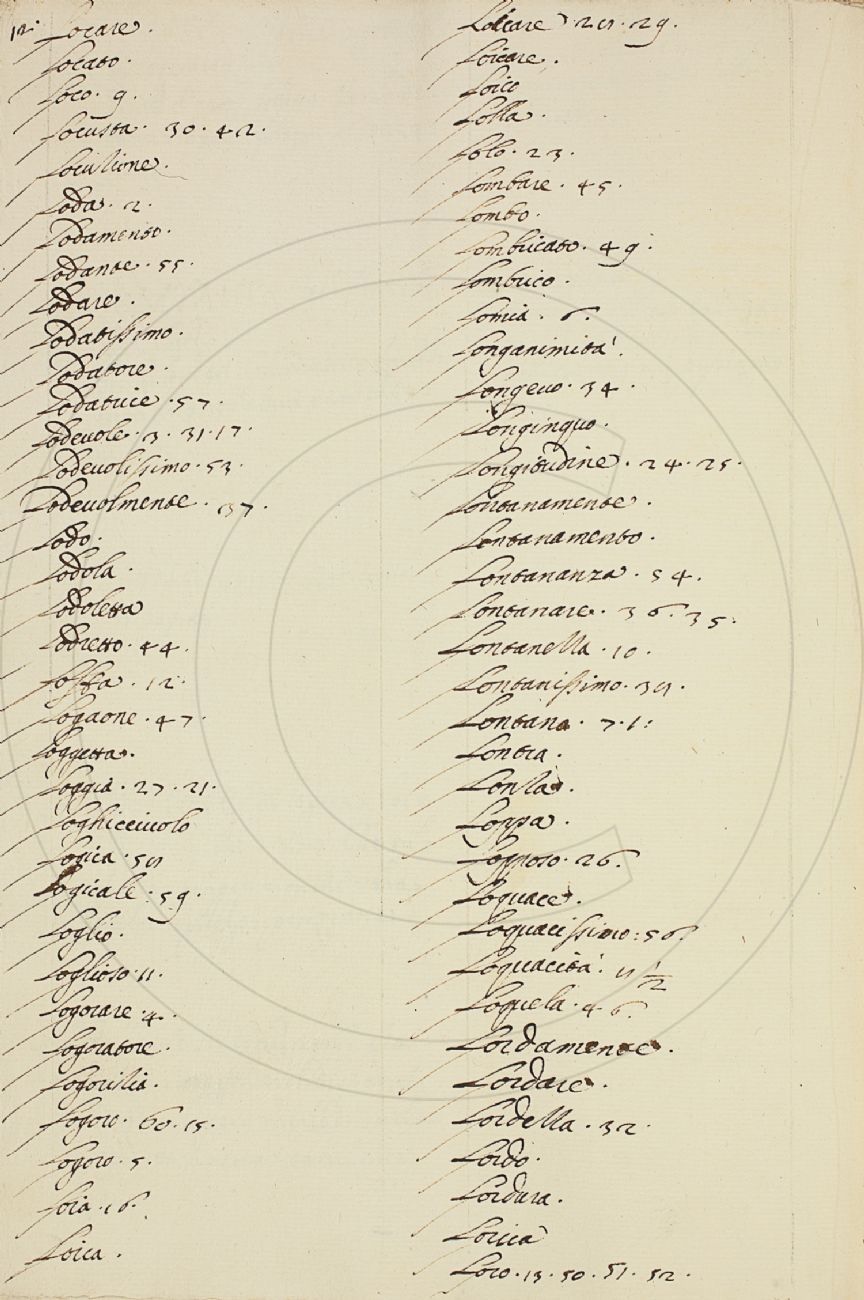 12.
Locare.
Locato.
Loco. 9.
Locusta. 30. 42.
Locuzione.
Loda. 2.
Lodamento.
Lodante. 55.
Lodare.
Lodatissimo.
Lodatore.
Lodatrice. 57.
Lodevole. 3. 31. 17.
Lodevolissimo. 53.
Lodevolmente. 37.
Lodo.
Lodola.
Lodoletta
Lodretto. 44.
Loffa. 12.
Logaone. 47.
Loggetta.
Loggia. 27. 21.
Loghicciuolo
Logica.
Logicale. 59.
Loglio.
Loglioso. 11.
Logorare. 4.
Logoratore.
Logorizia.
Logoro. 60. 15.
Logoro. 5.
Loia. 16.
Loica.
Loicare. 29.
Loicare.
Loico
Lolla.
Lolo. 23.
Lombare. 45.
Lombo.
Lombricato. 49.
Lombrico.
Lomia. 6.
Longanimità.
Longevo. 34.
Longinquo.
Longitudine. 24. 25.
Lontanamente.
Lontanamento.
Lontananza. 54.
Lontanare. 36. 35.
Lontanella. 10.
Lontanissimo.
Lontano. 7. 1.
Lontra.
Lonza.
Loppa.
Lopposo. 26.
Loquace.
Loquacissimo. 56.
Loquacità. 1/2
Loquela. 46.
Lordamente.
Lordare.
Lordella. 32.
Lordo.
Lordura.
Lorica
Loro. 13. 50. 51. 52.